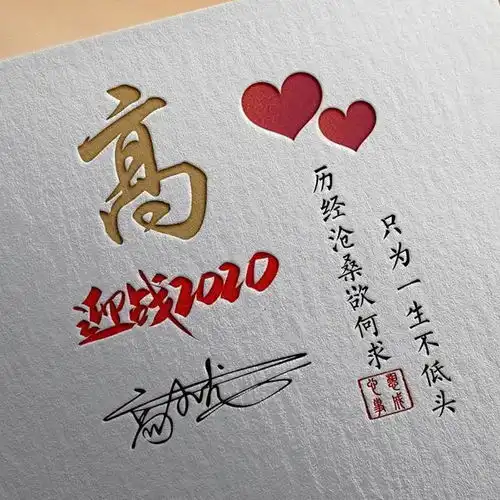 高
迎战2020
历经沧桑欲何求
只为一生不低头
心想事成